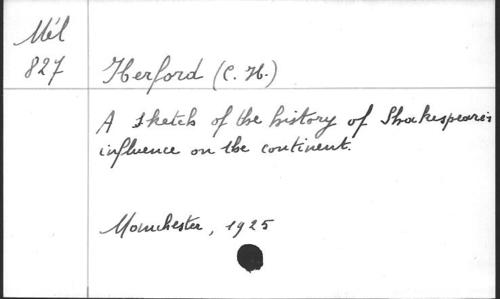 Mél
827
Herford (C. H.)
A sketch of the history of Shakespeare's
influence on the continent.
Manchester, 1925